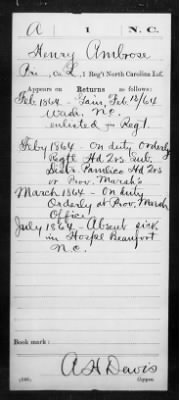 A 1 N.C.
Henry Ambrose
Pri, Co. L, 1 Reg't North Carolina Inf.
Appears on Returns as follows:
Feb. 1864 - Gain, Feb 12/64
Wash. N.C.
enlisted in Regt.
Feby 1864 - On duty Orderly
Regtl Hd Qrs Sub.
Distr. Pamlico Hd Qrs
or Prov. Marsh's
March 1864 - On duty
Orderly at Prov. Marsh
Office
July 1864 - Absent sick
in Hospl Beaufort
N.C.
Book mark:
A H Davis
Copyist.